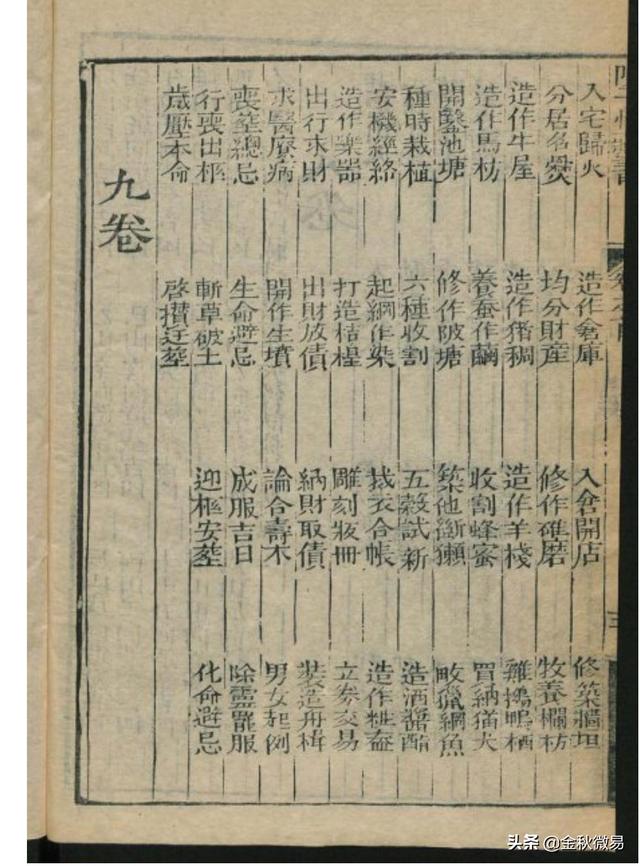 入宅歸火 造作倉庫 入倉開店 修築牆垣
分居各爨 均分財產 修作碓磨 牧養欄枋
造作牛屋 造作猪稠 造作羊棧 雞塢鴨栖
造作馬枋 養蚕作繭 收割蜂蜜 買納猫犬
開鑿池塘 修作陂塘 築池斷獺 畋獵網魚
種時栽植 六種收割 五穀試新 造酒醬醋
安機經絡 起綱作染 裁衣合帳 造作粧奩
造作樂器 打造桔槔 雕刻板冊 立券交易
出行求財 出財放債 納財取債 裝造舟楫
求醫療病 開作生墳 論合壽木 男女起例
喪葬總忌 生命避忌 成服吉日 除靈罷服
行喪出柩 斬草破土 迎柩安葬 化命避忌
歲壓本命 啓攢迁葬
九卷
三
头条 @金秋微易